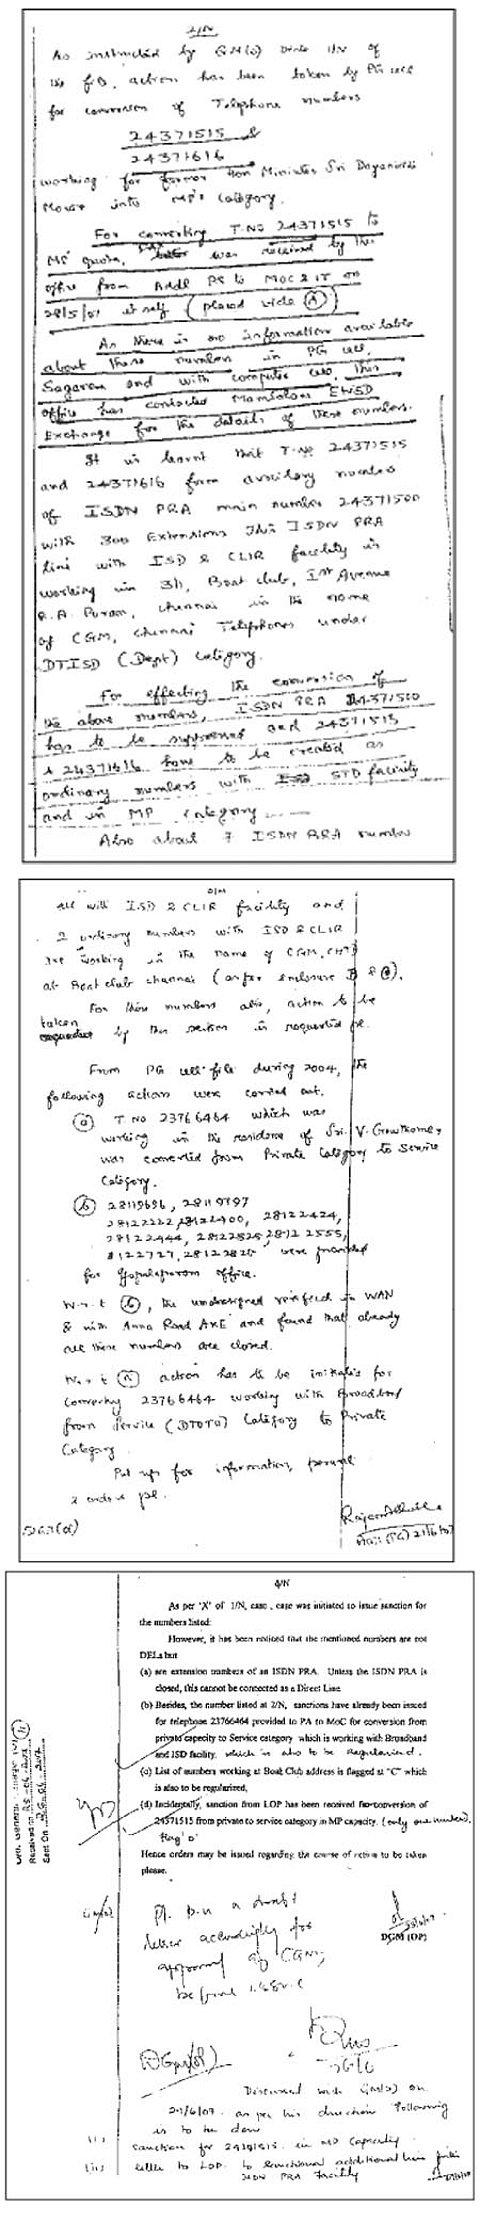 2/N
As instructed by GM(O) vide 1/N of
the file, action has been taken by PG cell
for conversion of Telephone numbers
24371515 &
24371616
working for former Hon Minister Sri Dayanidhi
Maran into MP's Category.
For converting T.No 24371515 to
MP quota, letter was received by this
office from Addl PS to MOC & IT on
28/5/07 itself (placed vide A)
As there is no information available
about these numbers in PG cell,
Sagaram and with computer cell, this
office has contacted Mambalam EWSD
Exchange for the details of these numbers.
It is learnt that T.No 24371515
and 24371616 form auxilary numbers
of ISDN PRA main number 24371500
with 300 Extensions This ISDN PRA
line with ISD & CLIR facility is
working in 3/1, Boat club, Ist Avenue
R.A. Puram, Chennai in the name
of CGM, Chennai Telephones under
DTISD (Dept) Category.
For effecting the conversion of
the above numbers, ISDN PRA 24371500
has to be suppressed and 24371515
& 24371616 have to be created as
ordinary numbers with STD facility
and in MP category
Also about 7 ISDN PRA number
all with ISD & CLIR facility and
2 ordinary numbers with ISD & CLIR
are working in the name of CGM, CHTD
at Boat club Chennai (as per enclosure B & C).
For these numbers also, action to be
taken by this section is requested pl.
From PG cell file during 2004, the
following actions were carried out.
(a) T.No 23766464 which was
working in the residence of Sri. V. Gowthaman
was converted from Private Category to Service
Category.
(b) 28119696, 28119797
28122222, 28122400, 28122424,
28122444, 28122525, 28122555,
28122727, 28122828 were provided
for Gopalapuram office.
W.r.t (b), the undersigned verified in WAN
& with Anna Road AXE and found that already
all these numbers are closed.
W.r.t (a) action has to be initiated for
converting 23766464 working with Broadband
from Service (DTOTO) Category to Private
Category.
Put up for information, perusal
& orders pl.
4/N
As per 'X' of 1/N, case , case was initiated to issue sanction for
the numbers listed:
However, it has been noticed that the mentioned numbers are not
DELs but
(a) are extension numbers of an ISDN PRA. Unless the ISDN PRA is
closed, this cannot be connected as a Direct Line
(b) Besides, the number listed at 2/N, sanctions have already been issued
for telephone 23766464 provided to PA to MoC for conversion from
private capacity to Service category which is working with Broadband
and ISD facility. which is also to be regularised.
(c) List of numbers working at Boat Club address is flagged at "C" which
is also to be regularized,
(d) Incidentally, sanction from LOP has been received for conversion of
24371515 from private to service category in MP capacity. (only one number)
Flag 'D'
Hence orders may be issued regarding the course of action to be taken
please.
DGM (OP)
Pl. put up a draft
letter accordingly for
approval of CGM,
before issue
DGM(OP)
Discussed with GM(O) on
27/6/07. as per his direction following
is to be done
(i) sanction for 24371515 in MP Capacity
(ii) letter to LOP to sanction additional line
ISDN PRA facility